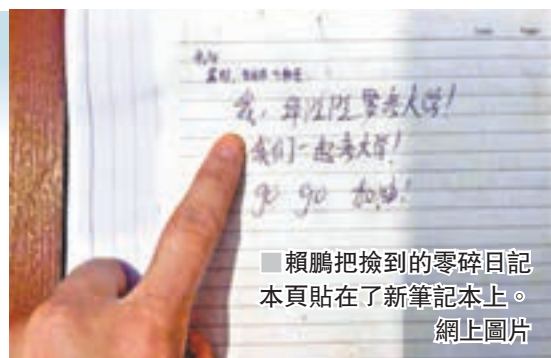 我,
要考大学!
我们一起考大学!
go go 加油!
賴鵬把撿到的零碎日記
本頁貼在了新筆記本上。
網上圖片